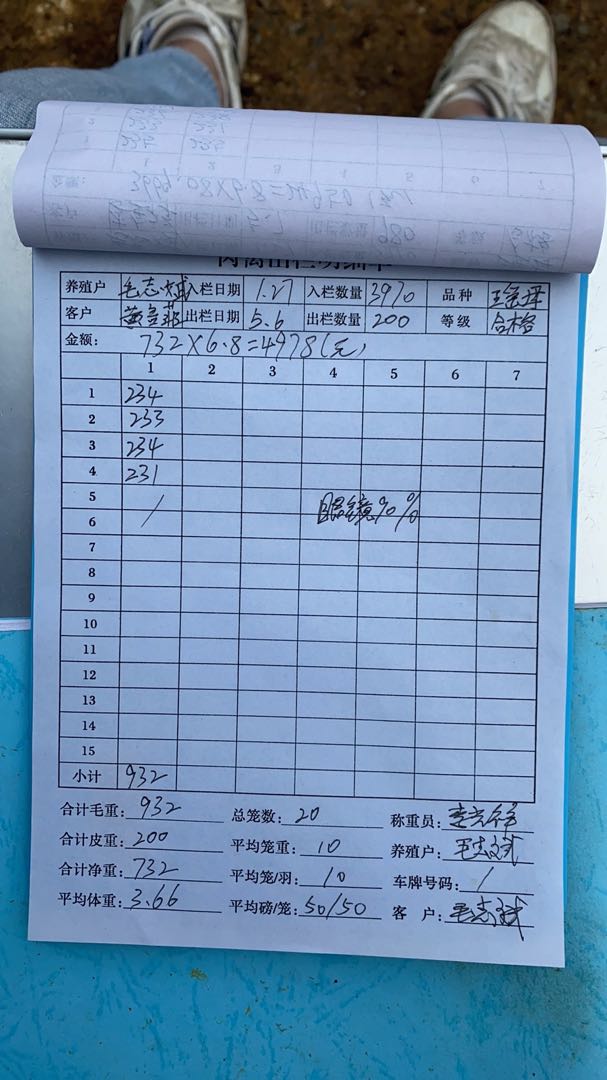 养殖户 毛志斌 入栏日期 1.27 入栏数量 3970 品种
客户 出栏日期 5.6 出栏数量 200 等级 合格
金额: 732×6.8=4978(元)
1 2 3 4 5 6 7
1 234
2 233
3 234
4 231
5
6 / 眼镜90%
7
8
9
10
11
12
13
14
15
小计 932
合计毛重: 932 总笼数: 20 称重员:
合计皮重: 200 平均笼重: 10 养殖户: 毛志斌
合计净重: 732 平均笼/羽: 10 车牌号码: /
平均体重: 3.66 平均磅/笼: 50/50 客 户: 毛志斌